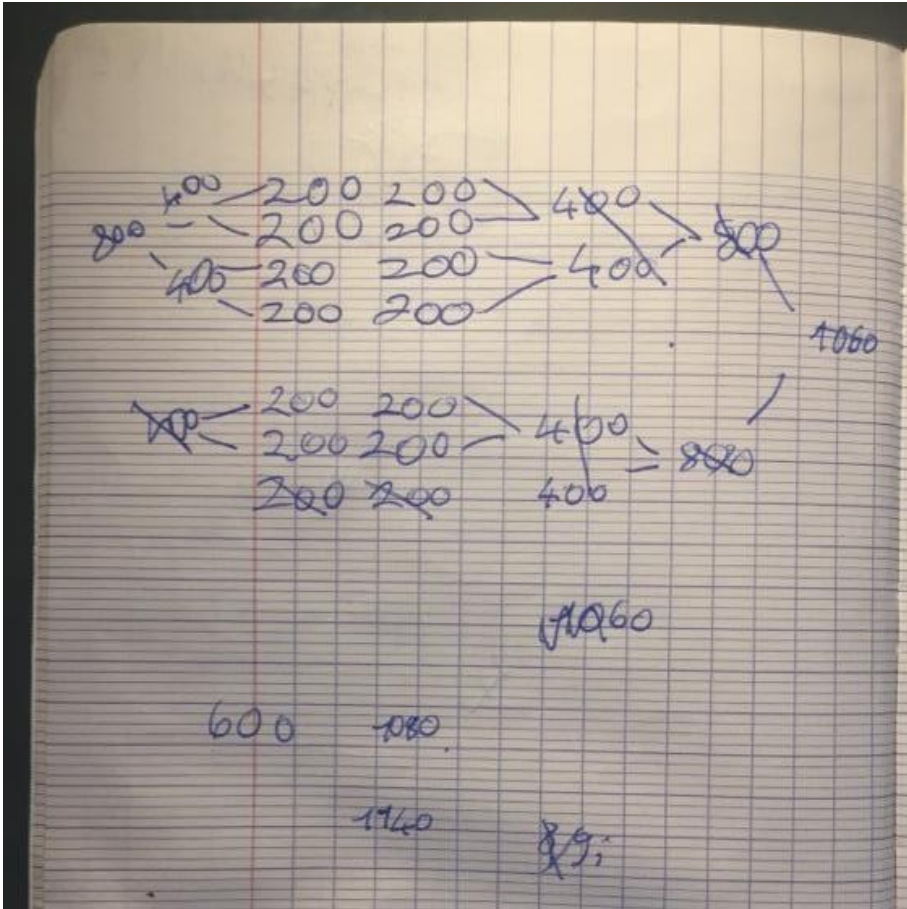 400 200 200 400
800 200 200 800
400 200 200 400
200 200
1060
200 200 400
200 200 800
200 200 400
1060
600 1080
1140